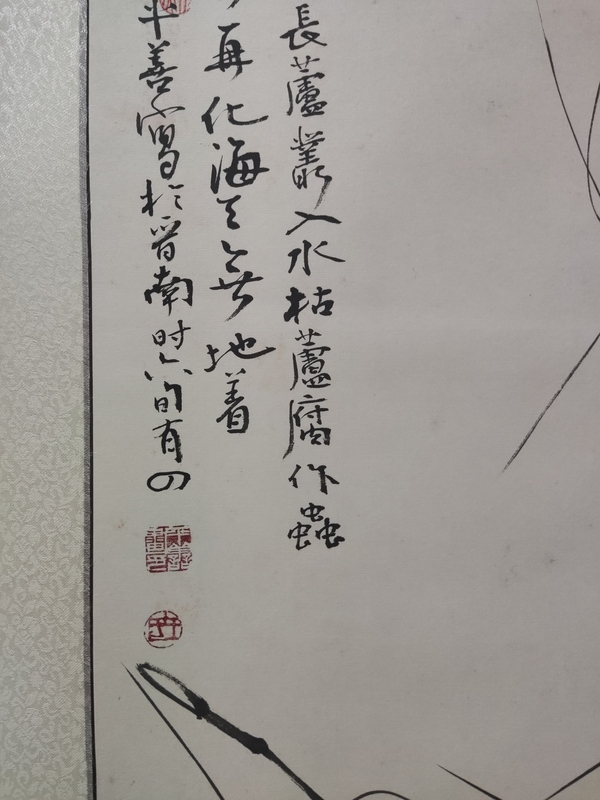 長蘆叢入水枯蘆腐作蟲
再化海天無地着
善寫於晉南时六旬有四